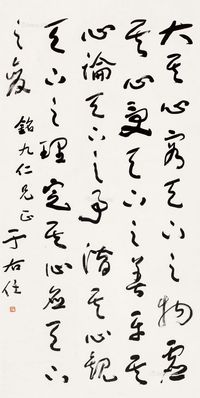 大其心容天下之物虛
其心受天下之善平其
心論天下之事潛其心觀
天下之理定其心應天下
之變
銘九仁兄正
于右任